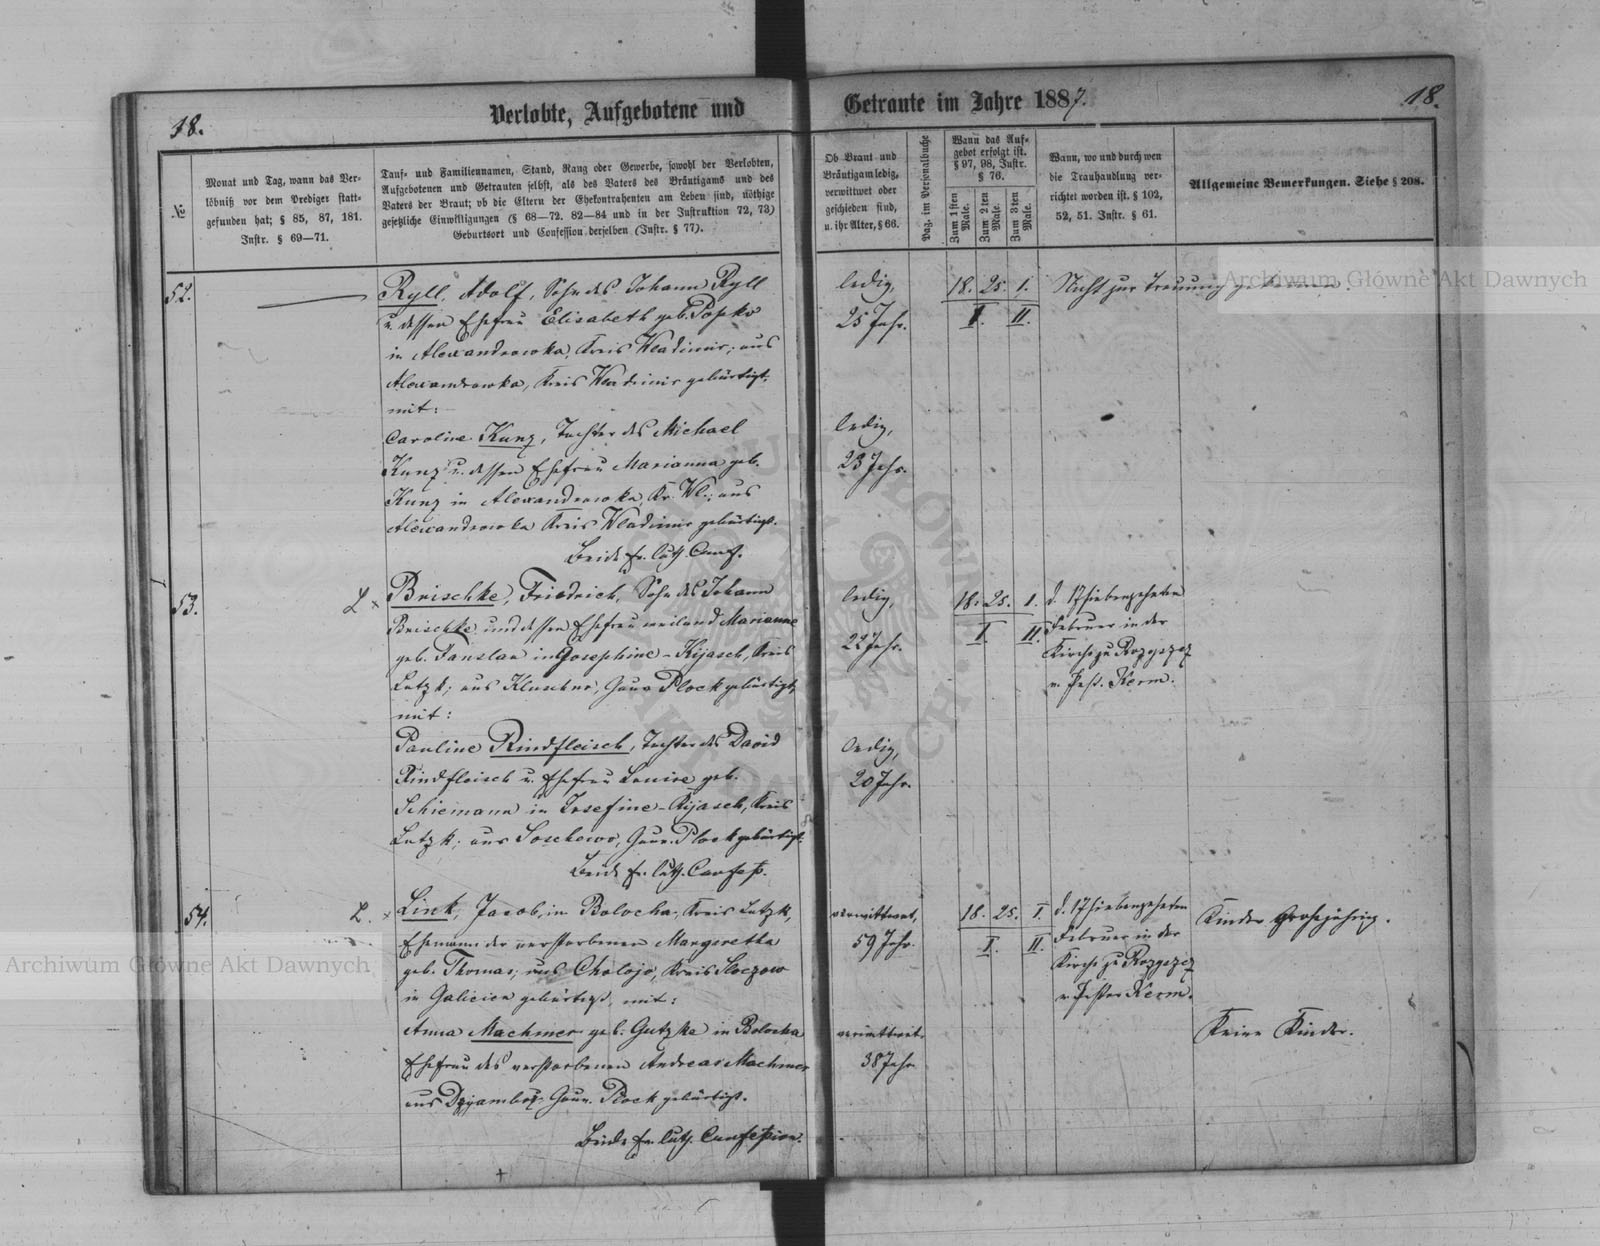 18.
Verlobte, Aufgebotene und
Getraute im Jahre 1887.
18.
№
Monat und Tag, wann das Ver-
löbniß vor dem Prediger statt-
gefunden hat; § 85, 87, 181.
Instr. § 69—71.
Tauf- und Familiennamen, Stand, Rang oder Gewerbe, sowohl der Verlobten,
Aufgebotenen und Getrauten selbst, als des Vaters des Bräutigams und des
Vaters der Braut; ob die Eltern der Ehekontrahenten am Leben sind, nöthige
gesetzliche Einwilligungen (§ 68—72. 82—84 und in der Instruktion 72, 73)
Geburtsort und Confession derselben (Instr. § 77).
Ob Braut und
Bräutigam ledig,
verwittwet oder
geschieden sind,
u. ihr Alter, § 66.
Pag. im Personalbuche
Wann das Auf-
gebot erfolgt ist.
§ 97, 98, Instr.
§ 76.
Zum 1sten Male.
Zum 2ten Male.
Zum 3ten Male.
Wann, wo und durch wen
die Trauhandlung ver-
richtet worden ist. § 102,
52, 51. Instr. § 61.
Allgemeine Bemerkungen. Siehe § 208.
52.
Ryll, Adolf, Sohn des Johann Ryll
u. dessen Ehefrau Elisabeth geb. Popko
in Alexandrowka, Kreis Wladimir; aus
Alexandrowka, Kreis Wladimir gebürtigt,
mit:
Caroline Kunz, Tochter des Michael
Kunz u. dessen Ehefrau Marianna geb.
Kunz in Alexandrowka, Kr. Wl.; aus
Alexandrowka Kreis Wladimir gebürtigt.
Beide ev. luth. Conf.
ledig,
25 Jahr.
ledig,
23 Jahr.
18. 25. 1.
I. II.
Nicht zur Trauung gekommen.
53.
L x
Brischke, Friedrich, Sohn des Johann
Brischke und dessen Ehefrau weiland Marianne
geb. Fanslau in Josephine-Kijasch, Kreis
Lutzk; aus Gouv. Plock gebürtigt,
mit:
Pauline Rindfleisch, Tochter des David
Rindfleisch u. Ehefrau Louise geb.
Schiemann in Josefine-Kijasch, Kreis
Lutzk; aus Soschowo, Gouv. Plock gebürtigt.
Beide ev. luth. Confess.
ledig,
22 Jahr.
ledig,
20 Jahr.
18. 25. 1.
I. II.
d. 17 siebenzehnten
Februar in der
Kirche zu Rozyszcz
v. Past. Kerm.
54.
L. x
Link, Jacob, in Bolocha, Kreis Lutzk,
Ehemann der verstorbenen Margaretha
geb. Thomas; aus Cholojo, Kreis Sloczow
in Galicien gebürtigt, mit:
Anna Machmer geb. Gutzke in Bolocha
Ehefrau des verstorbenen Andreas Machmer
aus Gouv. Plock gebürtigt.
Beide ev. luth. Confession.
verwittwet,
59 Jahr.
verwittwet.
38 Jahr
18. 25. 1.
I. II.
d. 17 siebenzehnten
Februar in der
Kirche zu Rozyszcz
v. Pastor Kerm.
Kinder großjährig.
Keine Kinder.
Archiwum Główne Akt Dawnych
Archiwum Główne Akt Dawnych